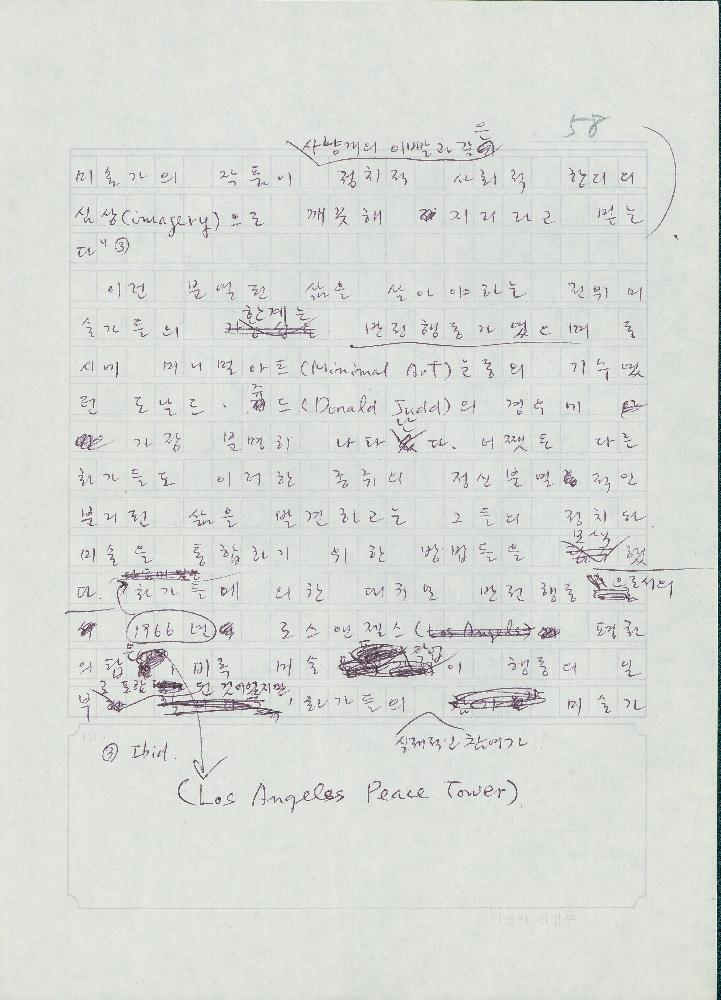 58
사냥개의 이빨과 같은
미술가의 작품이 정치적 사회적 한대의
심상(imagery)으로 깨끗해 지리라고 믿는
다" ③
이런 분열된 삶을 살아야하는 전위미
술가들의 한계는 반전행동자였으며 동
시에 미니멀아트(Minimal Art)운동의 기수였
던 도날드·쥬드(Donald Judd)의 경우에
가장 분명히 나타난다. 어쨋든 다른
화가들도 이러한 종류의 정신분열적인
분리된 삶을 발견하고는 그들의 정치와
미술을 통합하기 위한 방법들을 모색했
다. 화가들에 의한 대규모 반전행동으로서의
1966년 로스앤젤스(Los Angels) 평화
의 탑은 비록 미술작업이 행동의 일
부로 포함된 것이었지만, 화가들의 미술가
실제적인 참여가
③ Ibid.
(Los Angeless Peace Tower)